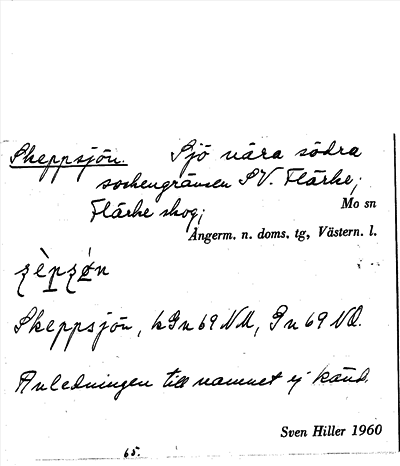 Skeppsjön. Sjö nära södra
sockengränsen SV. Flärke;
Flärke skog; Mo sn
Ångerm. n. doms. tg, Västern. l.
Skeppsjön, kGn 69 NM, Gn 69 NO.
Anledningen till namnet ej känd.
Sven Hiller 1960
65.